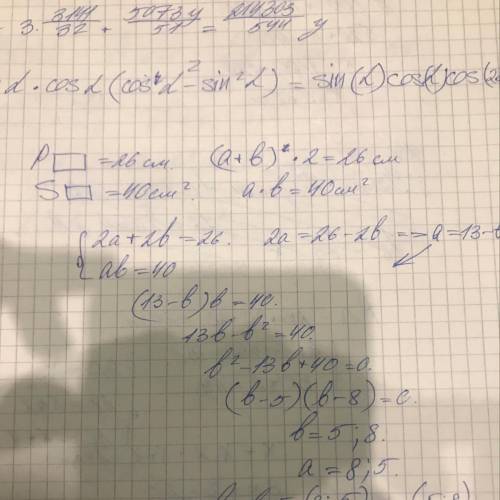 3. 3141/32 + 5073y/51 = 214303/544 y
α · cos α (cos²α - sin²α) = sin(α) cos(α) cos(2
P▭ = 26 см. (a+b) · 2 = 26 см
S▭ = 40 см². a · b = 40 см²
{2a + 2b = 26. 2a = 26 - 2b => a = 13 - b
ab = 40
(13 - b) b = 40.
13b - b² = 40.
b² - 13b + 40 = 0.
(b - 5)(b - 8) = 0.
b = 5; 8.
a = 8; 5.